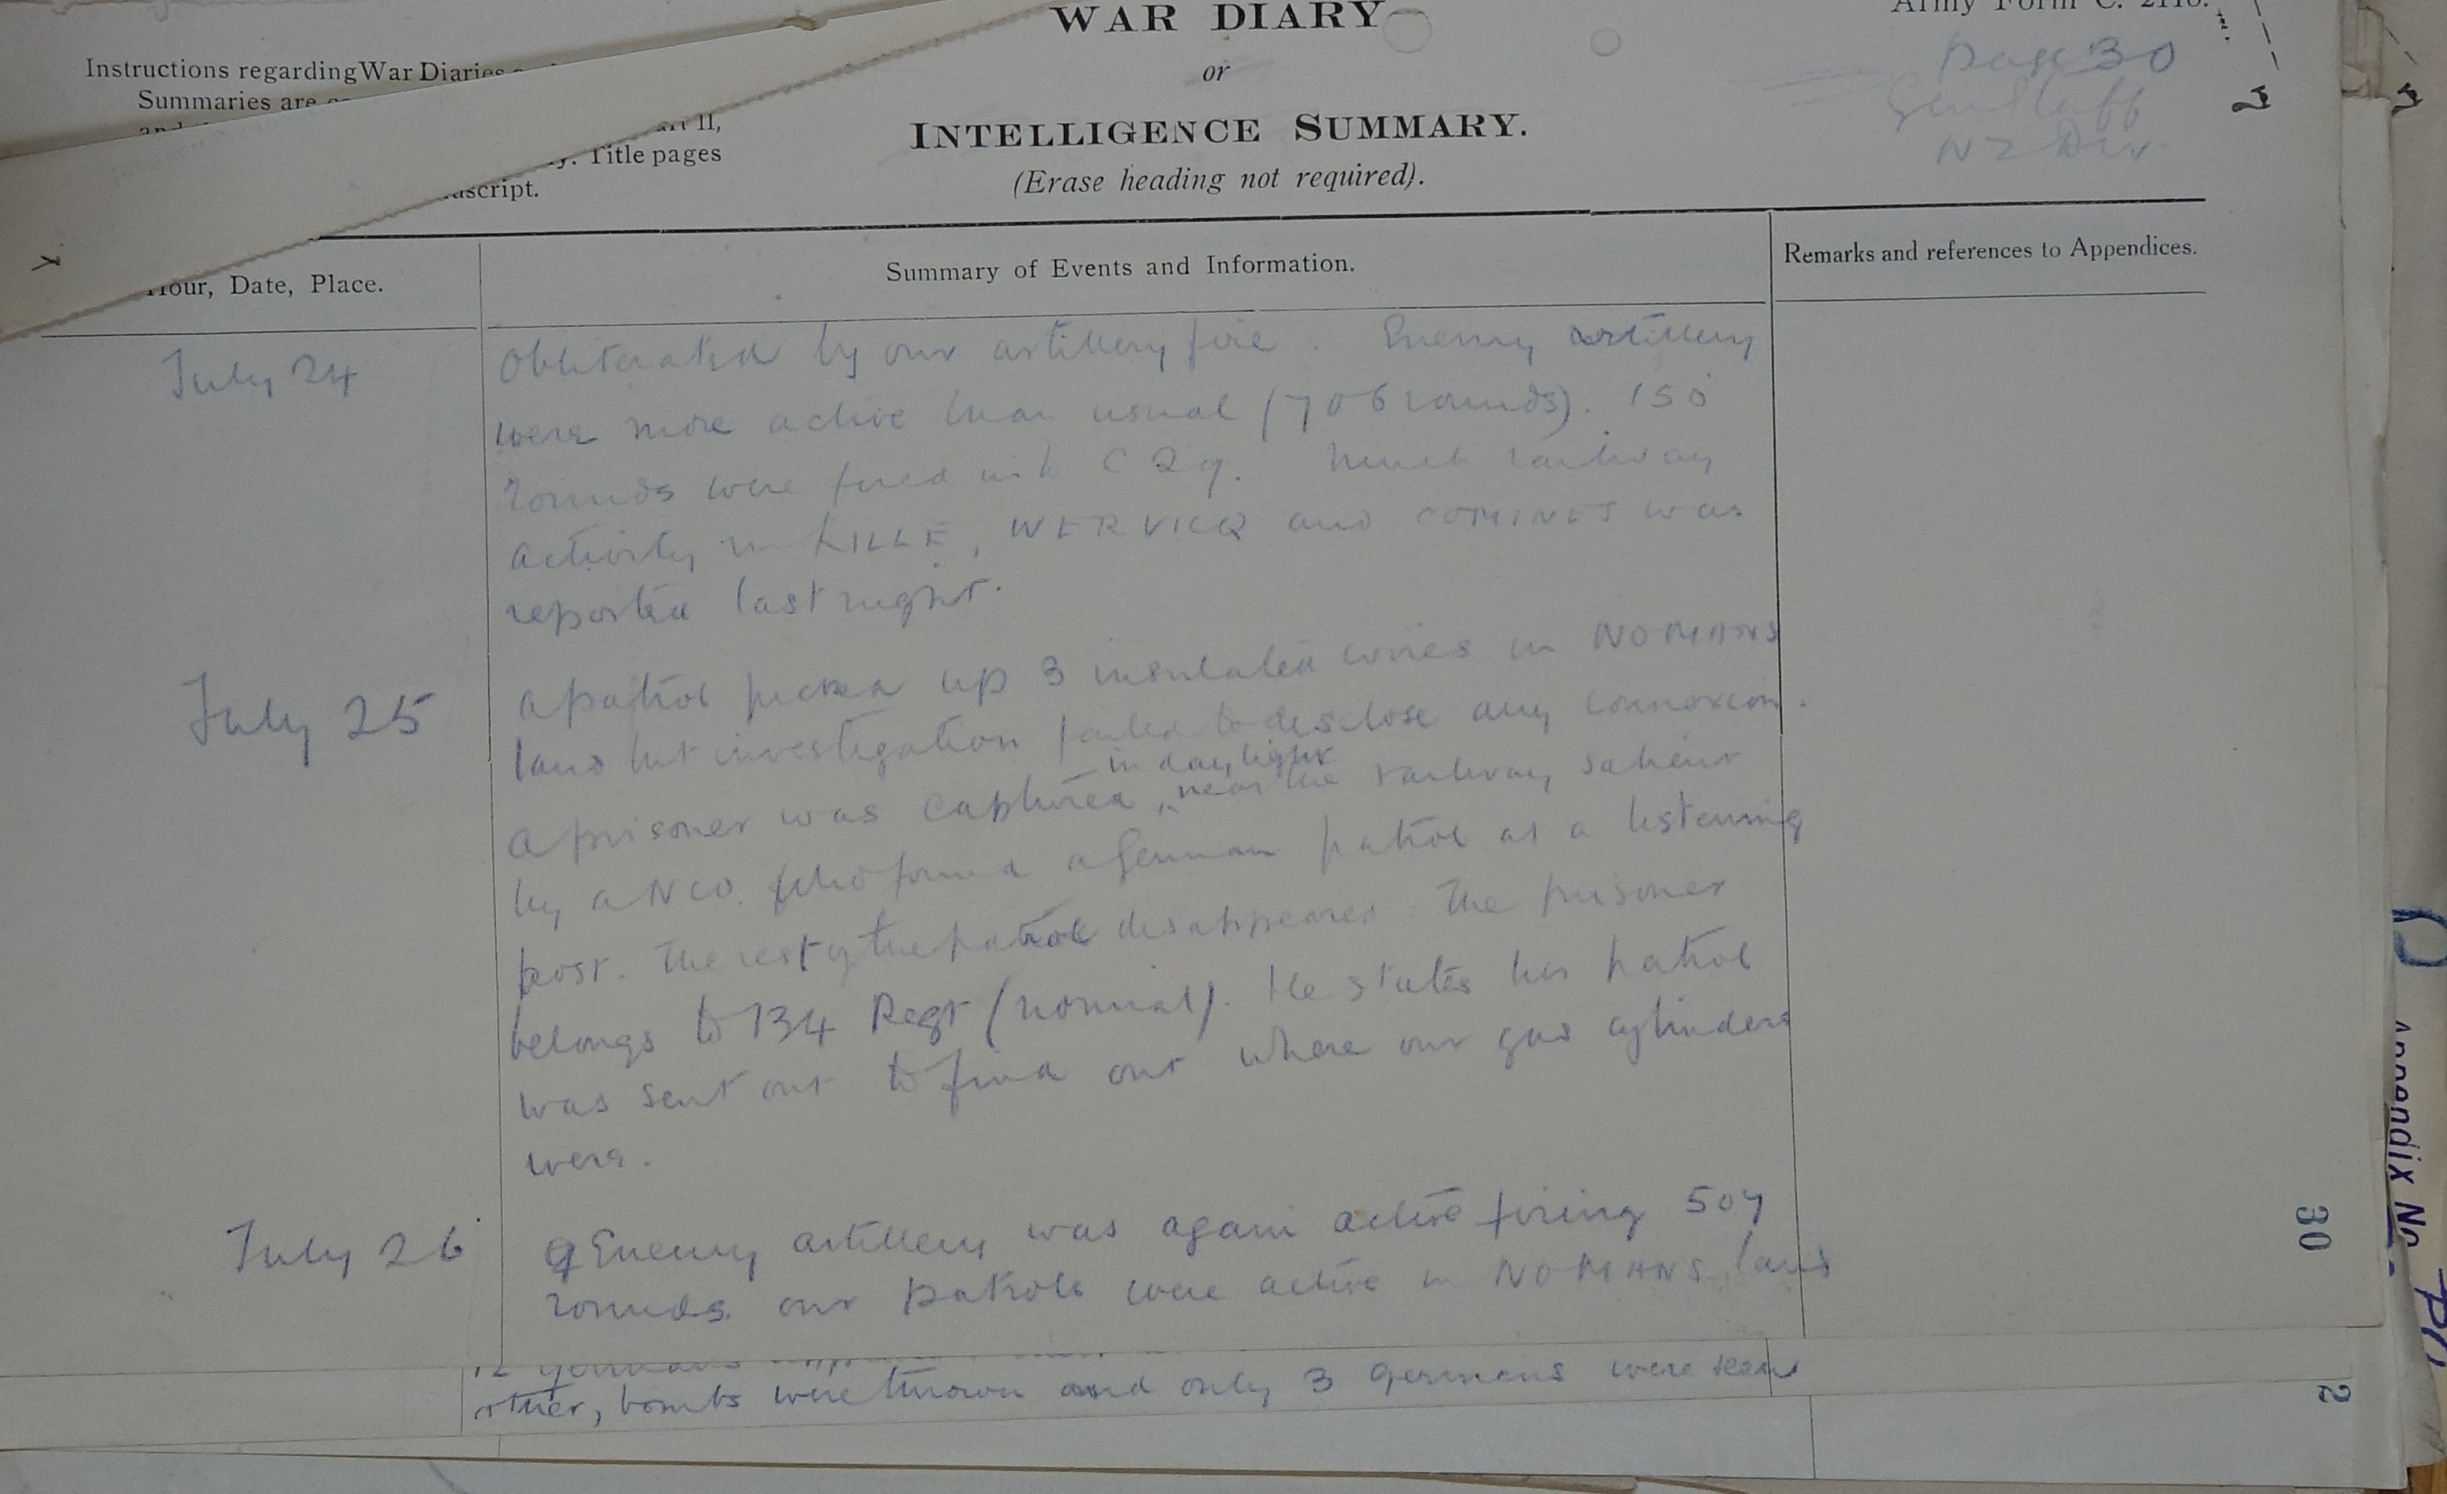 WAR DIARY
or
INTELLIGENCE SUMMARY.
(Erase heading not required).
Army Form C. 2118.
Instructions regarding War Diaries
Summaries are
II,
Title pages
Page 30
Gen Staff
NZ Div
Hour, Date, Place.
Summary of Events and Information.
Remarks and references to Appendices.
July 24
Obliterated by our artillery fire. Enemy artillery
were more active than usual (706 rounds). 150
rounds were fired into C 29. Much railway
activity in LILLE, WERVICQ and COMINES was
reported last night.
July 25
A patrol picked up 3 insulated wires in NO MANS
land but investigation failed to disclose any connexion.
A prisoner was captured in daylight near the railway salient
by a NCO. who found a German patrol at a listening
post. The rest of the patrol disappeared. The prisoner
belongs to 134 Regt (normal). He states his patrol
was sent out to find out where our gas cylinders
were.
July 26
Enemy artillery was again active firing 507
rounds. our patrols were active in NO MANS land
12 Germans
other, bombs were thrown and only 3 germans were seen
30
2
Appendix No